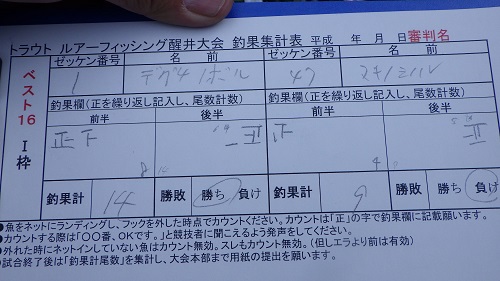 トラウト ルアーフィッシング醒井大会 釣果集計表 平成 年 月 日 審判名
ベスト16 I枠
ゼッケン番号 名前 ゼッケン番号 名前
1 デクノボル 47 マキノミハル
釣果欄(正を繰り返し記入し、尾数計数) 釣果欄(正を繰り返し記入し、尾数計数)
前半 後半 前半 後半
正下 正一 正 正
8 9
釣果計 14 勝敗 勝ち 負け 釣果計 9 勝敗 勝ち 負け
●魚をネットにランディングし、フックを外した時点でカウントください。カウントは「正」の字で釣果欄に記載願います。
●カウントする際は「〇〇番、OKです。」と競技者に聞こえるよう発声をしてください。
●外れた時にネットインしていない魚はカウント無効。スレもカウント無効。(但しエラより前は有効)
●試合終了後は「釣果計尾数」を集計し、大会本部まで用紙の提出を願います。